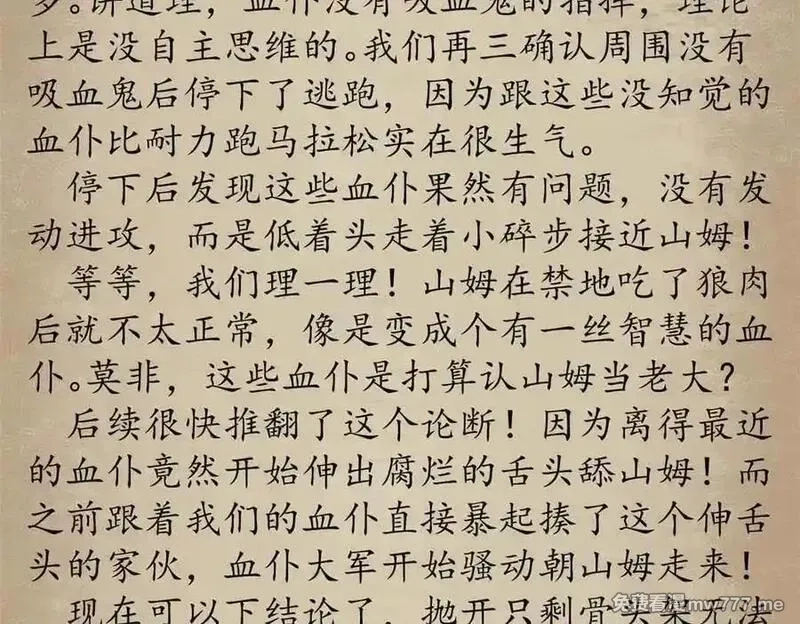 多。讲道理，血仆没有吸血鬼的指挥，理论
上是没自主思维的。我们再三确认周围没有
吸血鬼后停下了逃跑，因为跟这些没知觉的
血仆比耐力跑马拉松实在很生气。
停下后发现这些血仆果然有问题，没有发
动进攻，而是低着头走着小碎步接近山姆！
等等，我们理一理！山姆在禁地吃了狼肉
后就不太正常，像是变成个有一丝智慧的血
仆。莫非，这些血仆是打算认山姆当老大？
后续很快推翻了这个论断！因为离得最近
的血仆竟然开始伸出腐烂的舌头舔山姆！而
之前跟着我们的血仆直接暴起揍了这个伸舌
头的家伙，血仆大军开始骚动朝山姆走来！
现在可以下结论了，抛开只剩骨头架无法
免费看漫mw777.me